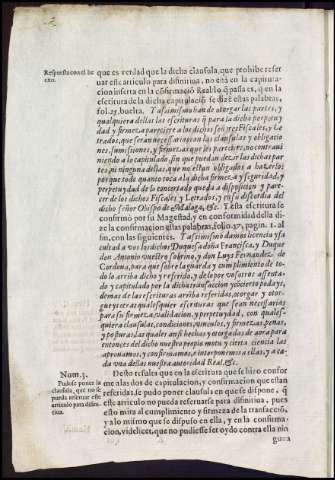 Respuesta con el he
cho.
que es verdad que la dicha clausula, que prohibe reser
uar este articulo para difinitiua, no està en la capitula-
cion inserta en la cõfirmaciõ Real lo q̃ passa es, q̃ en la
escritura de la dicha capitulaciõ se dizẽ estas palabras,
fol. 25. buelta. Y assimismo han de otorgar las partes, y
qualquiera dellas las escrituras q̃ para la dicha perpetuy
dad y firmeza pareciere a los dichos señores Fiscales, y Le
trados, que seran necessarias con las clausulas y obligacio
nes, sumissiones, y firmezas que les pareciere, no contraui
niendo a lo capitulado, sin que puedan dezir las dichas par
tes ni ninguna dellas, que no estan obligados a hazerlos,
porque todo quanto toca a la dicha firmeza y seguridad, y
perpetuydad de lo concertado queda a disposicion y pare
cer de los dichos Fiscales y Letrados, y en su discordia del
dicho señor Obispo de Malaga, &c. Y esta escritura se
confirmò por su Magestad, y en conformidad della di-
ze la confirmacion estas palabras, folio. 37. pagin. 1. al
fin, con las siguientes. Y assimismo damos licencia y fa
cultad a vos los dichos Duquesa doña Francisca, y Duque
don Antonio nuestro sobrino, y don Luys Fernandez de
Cordoua, para que sobre la guarda y cumplimiento de to-
do lo arriba dicho y referido, y de lo por vosotros assenta-
do y capitulado por la dicha transaccion y concierto podays,
demas de las escrituras arriba referidas, otorgar y otor-
gueys otras qualesquier escrituras que sean necessarias
para su firmeza, validacion, y perpetuydad, con quales-
quiera clausulas, condiciones, vinculos, y firmezas, penas,
y posturas, las quales assi hechas y otorgadas de aora para
entonces del dicho nuestro propio motu y cierta ciencia las
aprouamos, y confirmamos, e interponemos a ellas, y a ca-
da vna dellas nuestra autoridad Real, &c.
Num. 3.
Pudose poner la
clausula, que no se
pueda reseruar este
articulo para difini-
tiua.
Desto resulta que en la escritura que se hizo confor
me a las dos de capitulacion, y confirmacion que estan
referidas, se pudo poner clausula en que se dispone, q̃
este articulo no pueda reseruarse para difinitiua, pues
esto mira al cumplimiento y firmeza de la transacciõ,
y a lo mismo que se dispuso en ella, y en la confirma-
cion, videlicet, que no pudiesse ser oydo contra ella nin
guna